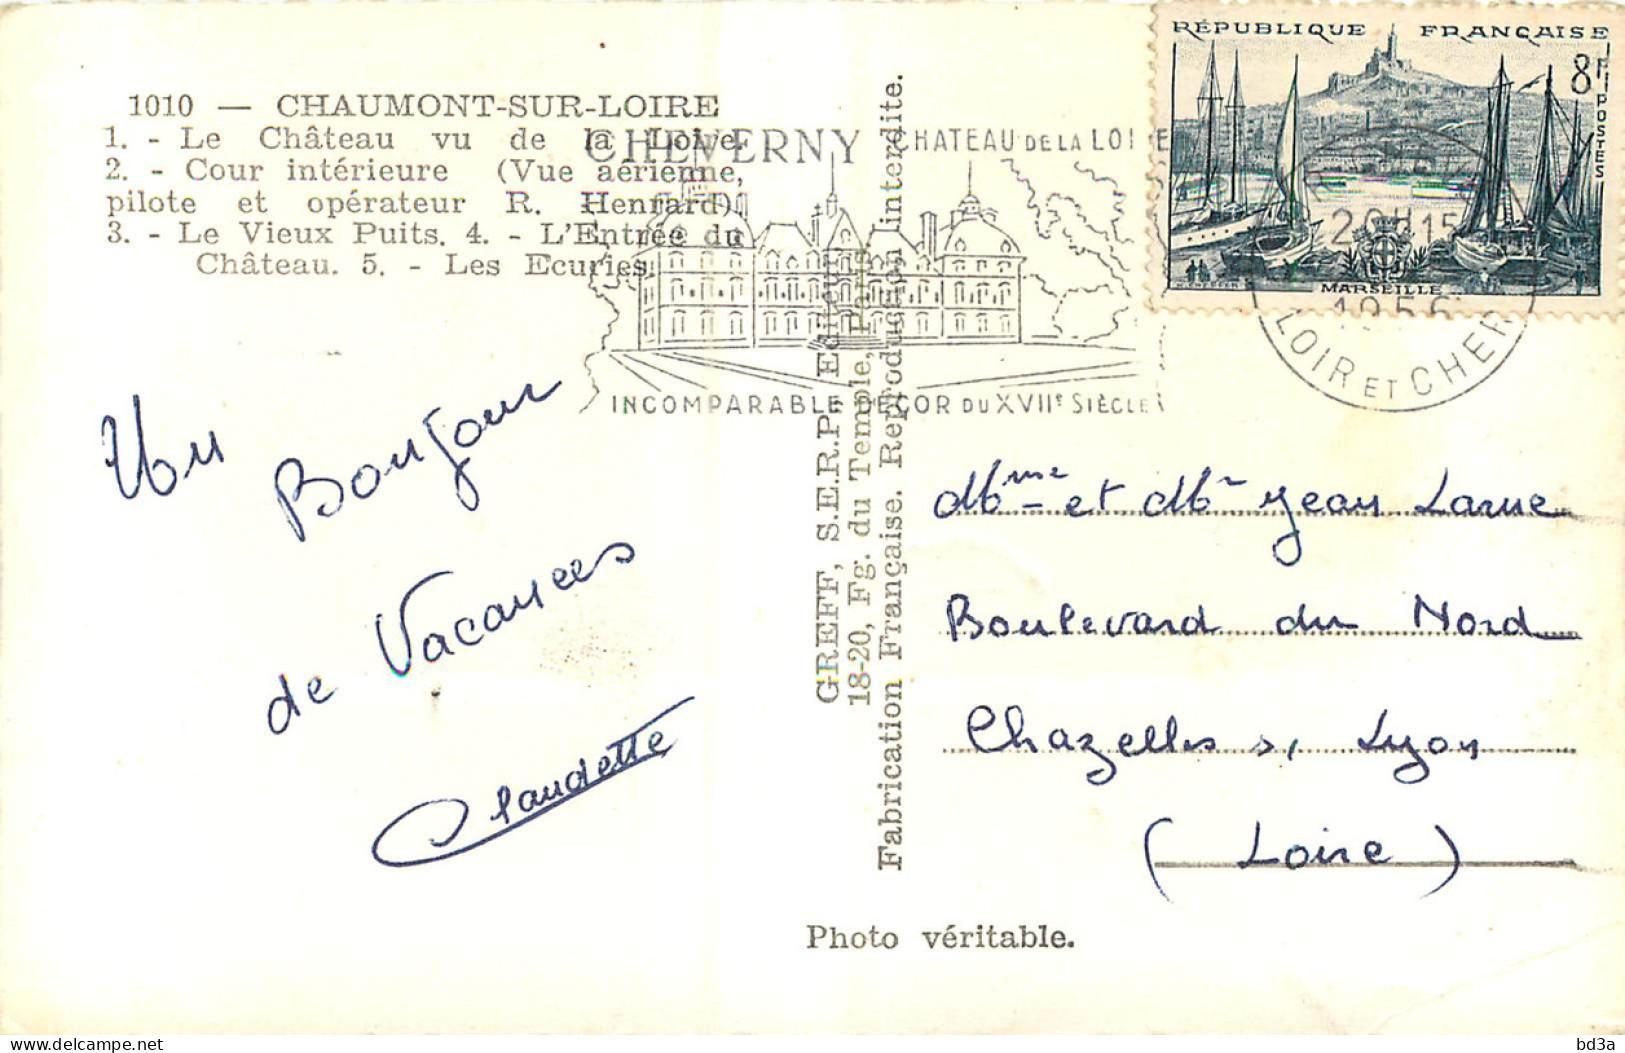 1010 — CHAUMONT-SUR-LOIRE
1. - Le Château vu de la Loire.
2. - Cour intérieure (Vue aérienne,
pilote et opérateur R. Henrard).
3. - Le Vieux Puits. 4. - L'Entrée du
Château. 5. - Les Ecuries.
CHEVERNY CHATEAU DE LA LOIRE
INCOMPARABLE DECOR DU XVIIe SIÈCLE
RÉPUBLIQUE FRANÇAISE
8F
POSTES
MARSEILLE
1956
LOIR ET CHER
Un Bonjour
de Vacances
Claudette
GREFF, S.E.R.P. Editeur
18-20, Fg. du Temple, Paris
Fabrication Française. Reproduction interdite.
Mme et Mr Jean Larue
Boulevard du Nord
Chazelles s, Lyon
( Loire )
Photo véritable.
delcampe.net
bd3a